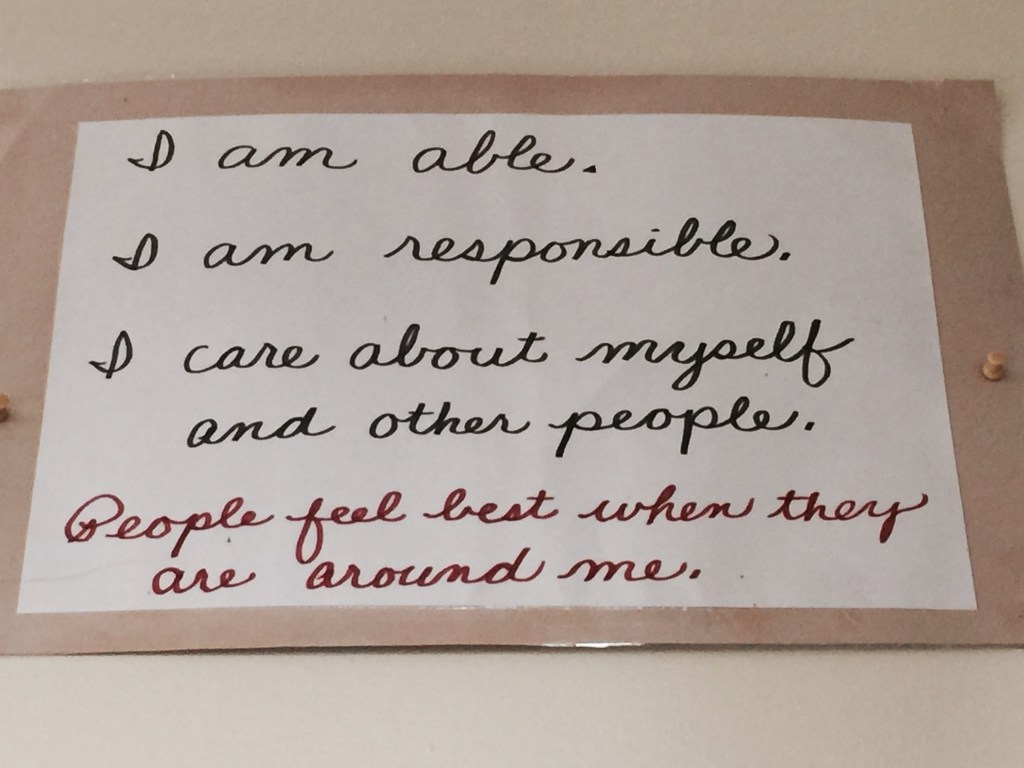 I am able.
I am responsible.
I care about myself
and other people.
People feel best when they
are around me.